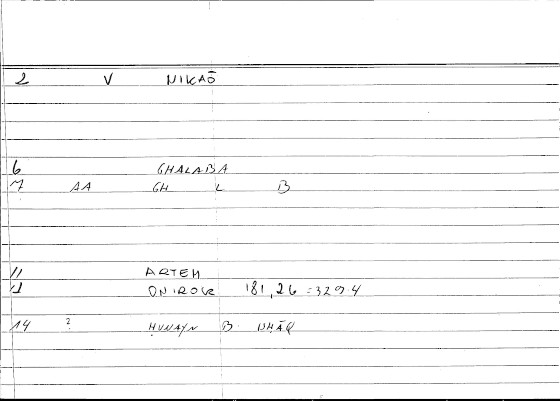 2 V NIKAŌ
6 GHALABA
7 AA GH L B
11 ARTEM
12 ONIROCR 181,26 = 329.4
14 ? ḤUNAYN B ISḤĀQ